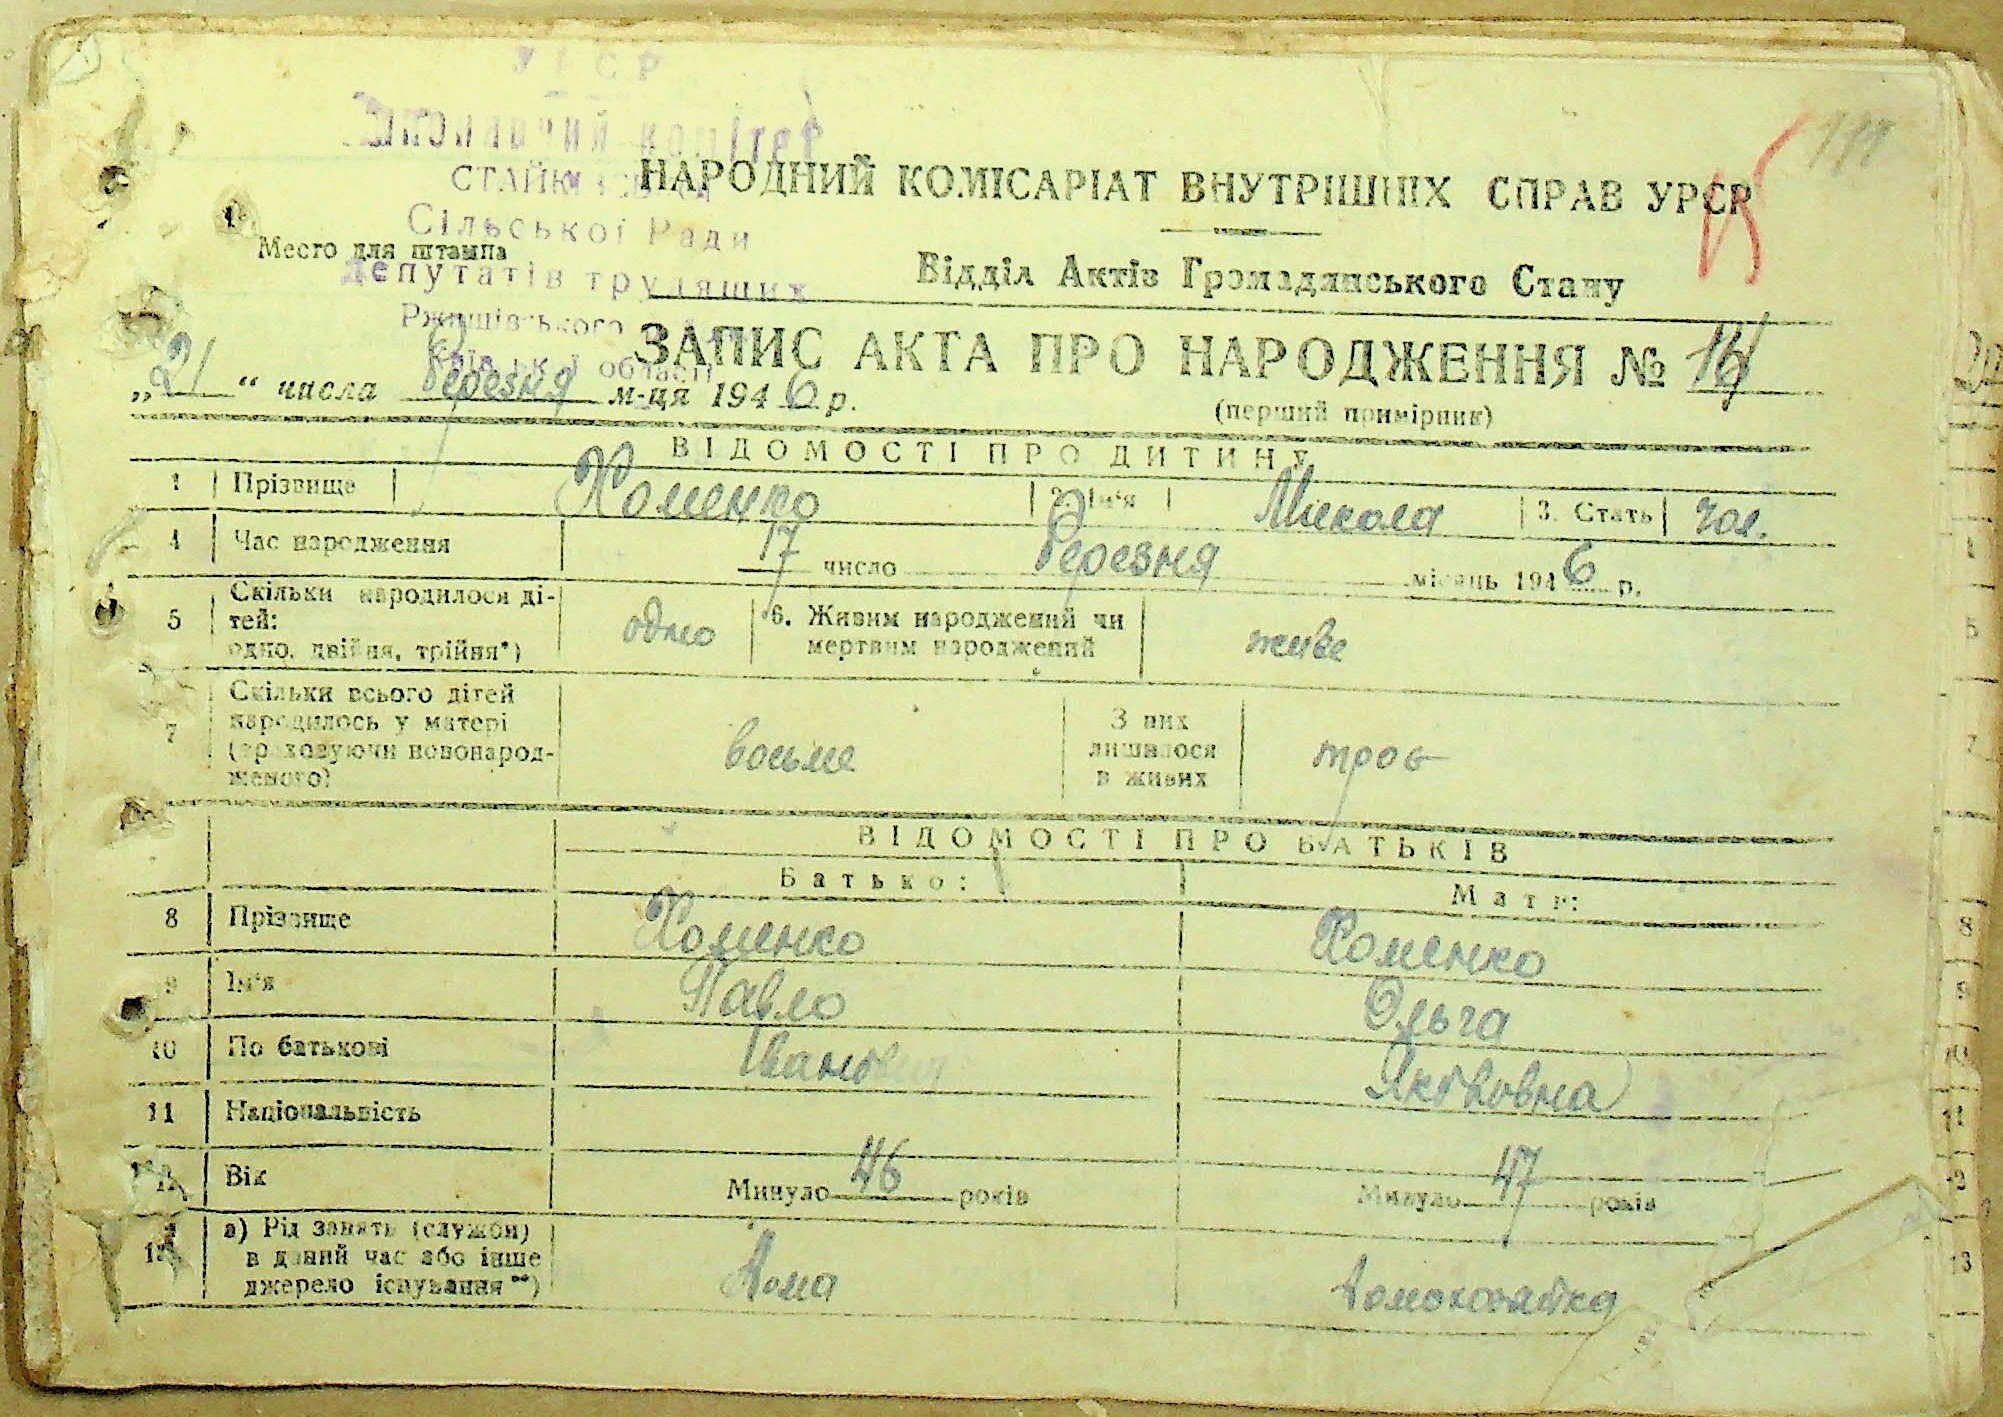 УРСР
Виконавчий комітет
СТАЙКІВСЬКОЇ
Сільської Ради
депутатів трудящих
Ржищівського
Київської області
Место для штампа
НАРОДНИЙ КОМІСАРІАТ ВНУТРІШНІХ СПРАВ УРСР
Відділ Актів Громадянського Стану
ЗАПИС АКТА ПРО НАРОДЖЕННЯ № 14
„21“ числа березня м-ця 1946 р.
(перший примірник)
ВІДОМОСТІ ПРО ДИТИНУ
1 Прізвище Хоменко 2. Ім'я Микола 3. Стать чол.
4 Час народження 17 число березня місяць 1946 р.
5 Скільки народилося ді-
тей:
одно, двійня, трійня*) одно
6. Живим народжений чи
мертвим народжений живе
7 Скільки всього дітей
народилось у матері
(враховуючи новонарод-
женого) восьме
З них
лишилося
в живих троє
ВІДОМОСТІ ПРО БАТЬКІВ
Батько: Мати:
8 Прізвище Хоменко Хоменко
9 Ім'я Павло Ольга
10 По батькові Іванович Яківовна
11 Національність
12 Вік Минуло 46 років Минуло 47 років
13 а) Рід занять (служби)
в даний час або інше
джерело існування**) Дома Домохозяйка